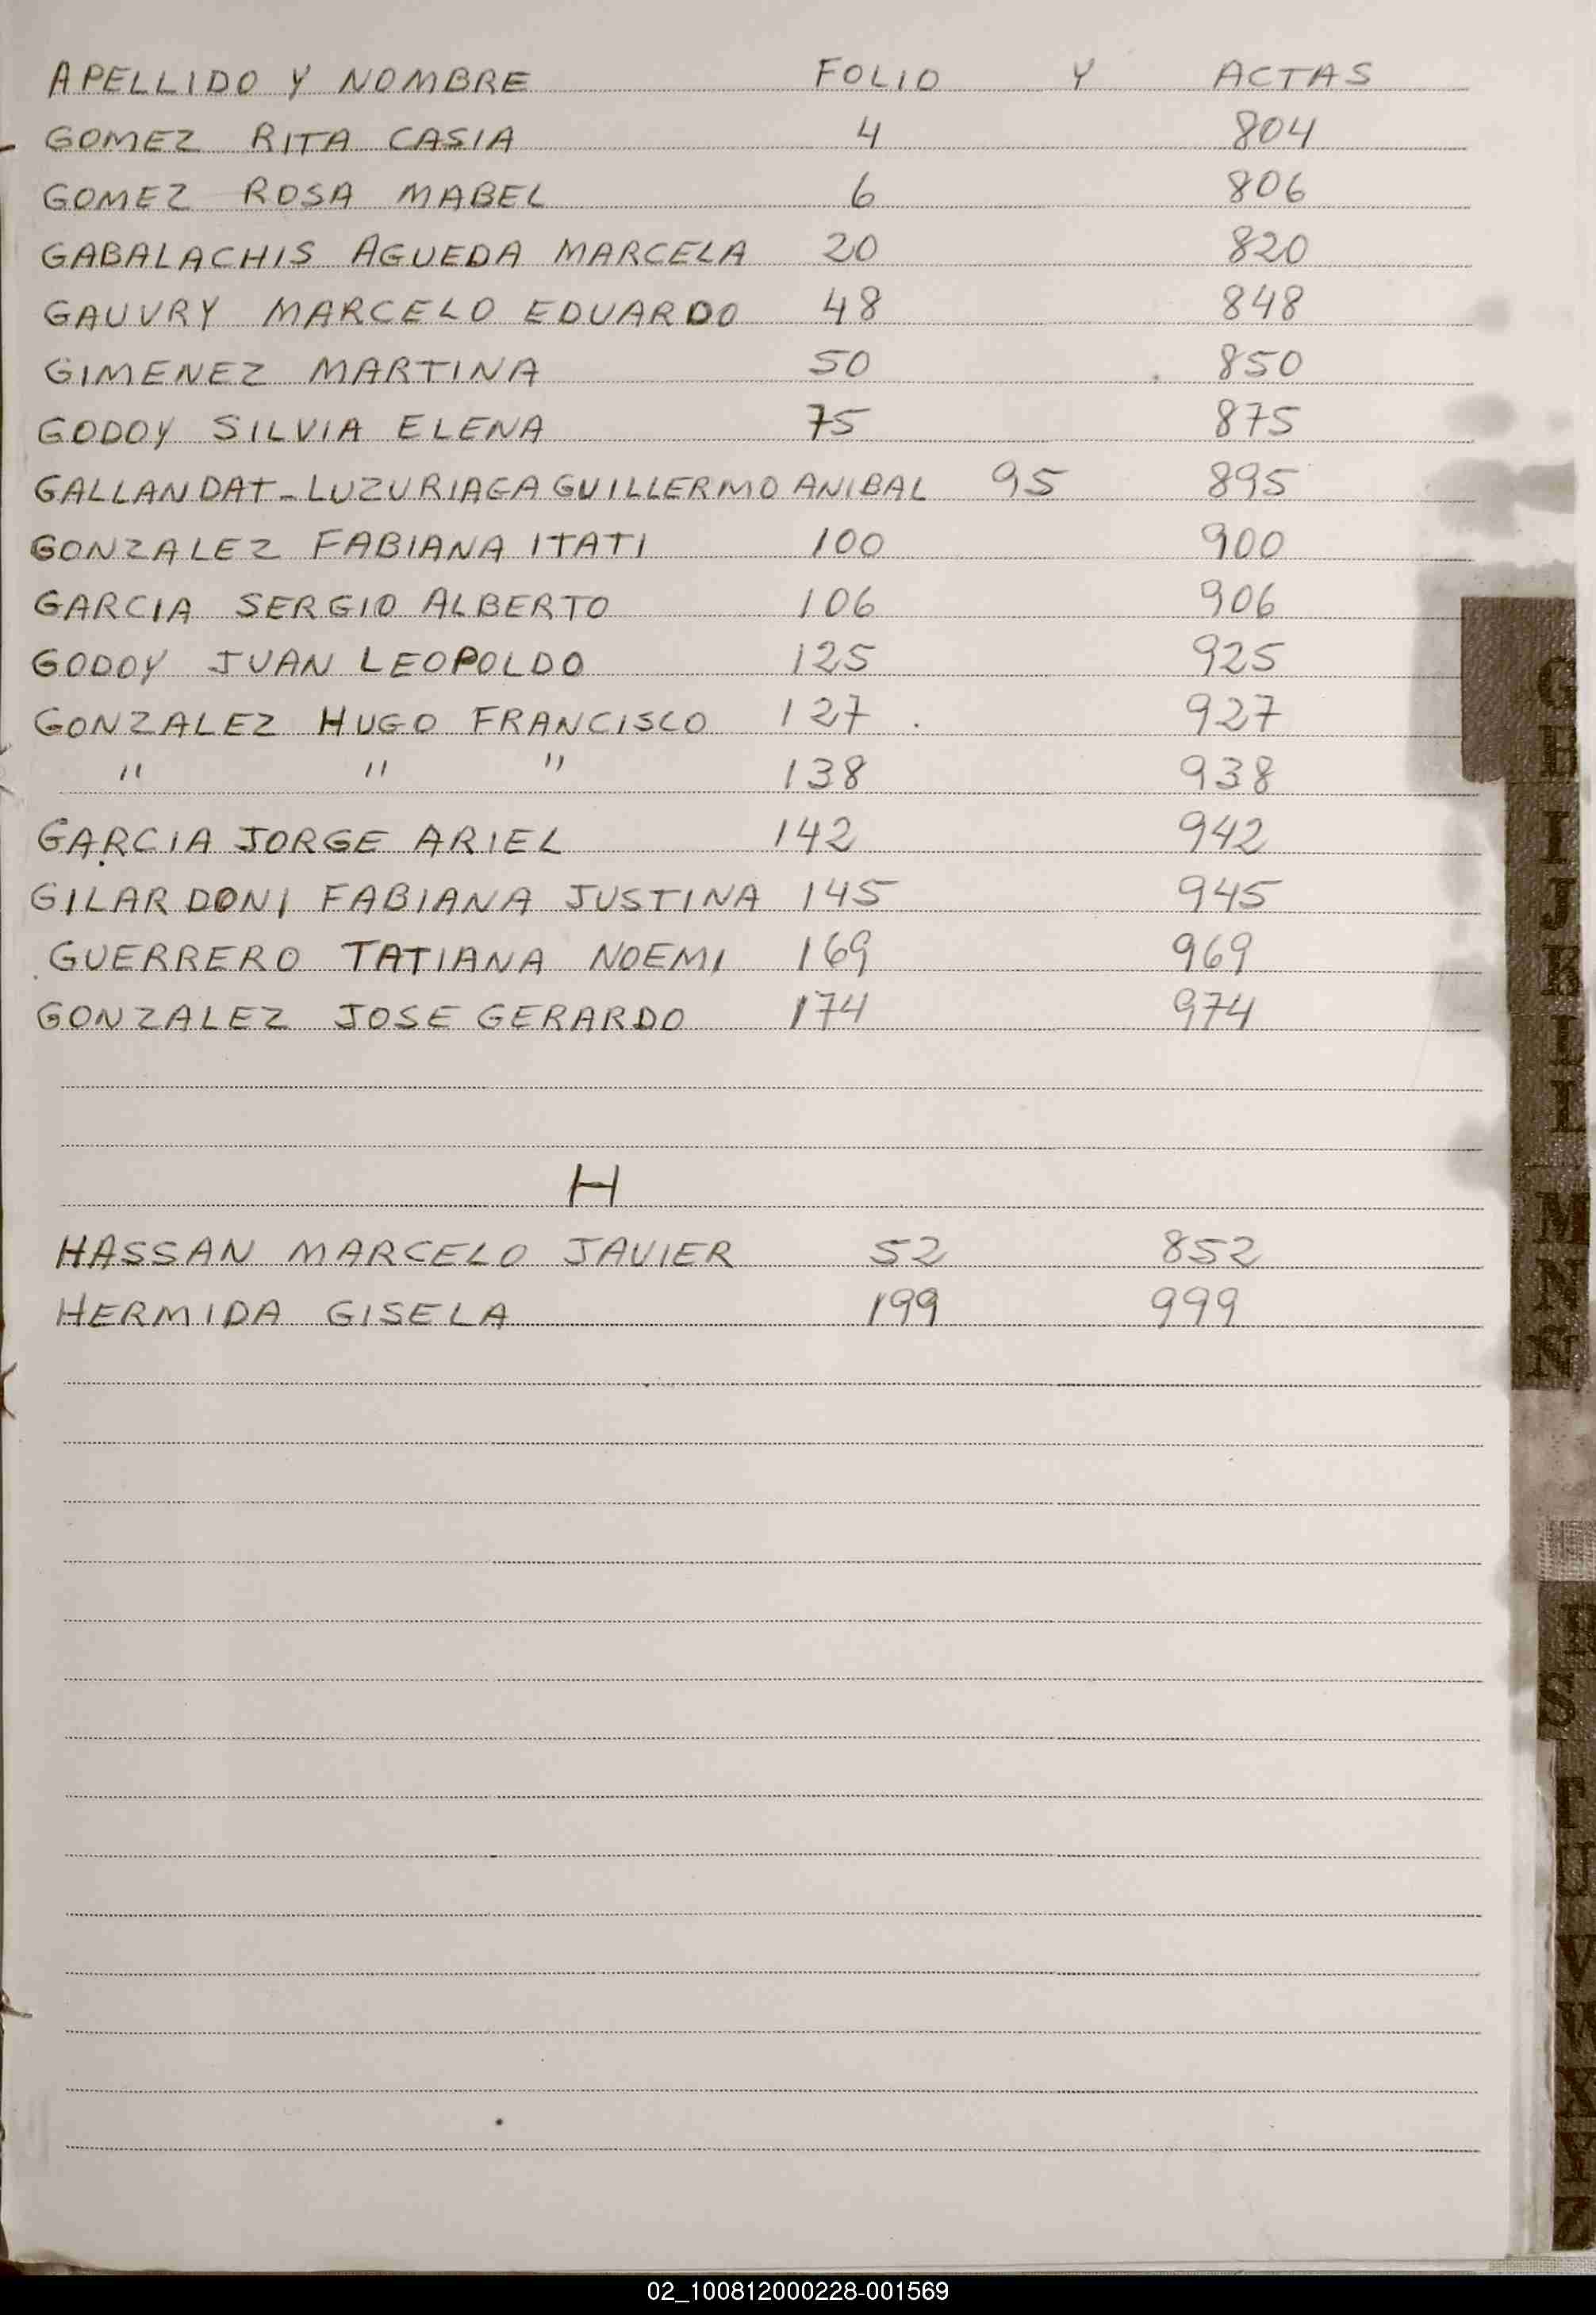 APELLIDO Y NOMBRE FOLIO Y ACTAS
GOMEZ RITA CASIA 4 804
GOMEZ ROSA MABEL 6 806
GABALACHIS AGUEDA MARCELA 20 820
GAUVRY MARCELO EDUARDO 48 848
GIMENEZ MARTINA 50 850
GODOY SILVIA ELENA 75 875
GALLANDAT-LUZURIAGA GUILLERMO ANIBAL 95 895
GONZALEZ FABIANA ITATI 100 900
GARCIA SERGIO ALBERTO 106 906
GODOY JUAN LEOPOLDO 125 925
GONZALEZ HUGO FRANCISCO 127 927
" " " 138 938
GARCIA JORGE ARIEL 142 942
GILARDONI FABIANA JUSTINA 145 945
GUERRERO TATIANA NOEMI 169 969
GONZALEZ JOSE GERARDO 174 974
H
HASSAN MARCELO JAVIER 52 852
HERMIDA GISELA 199 999
G
H
I
J
K
L
M
N
Ñ
S
T
U
V
W
X
Y
Z
02_100812000228-001569